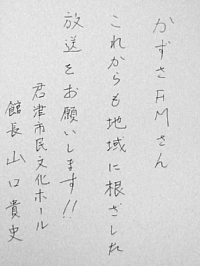 かずさFMさん
これからも地域に根ざした
放送をお願いします!!
君津市民文化ホール
館長 山口貴史